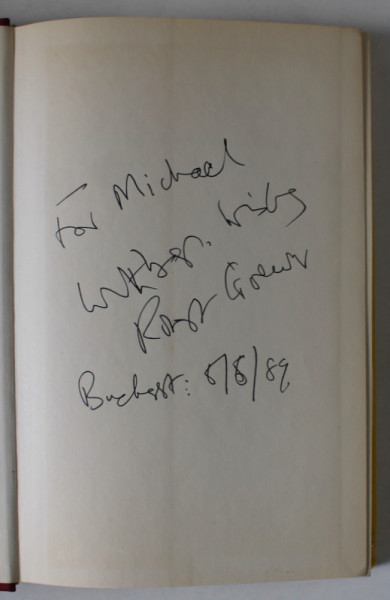 For Michael
With best wishes
Robert
Bucharest: 8/8/89